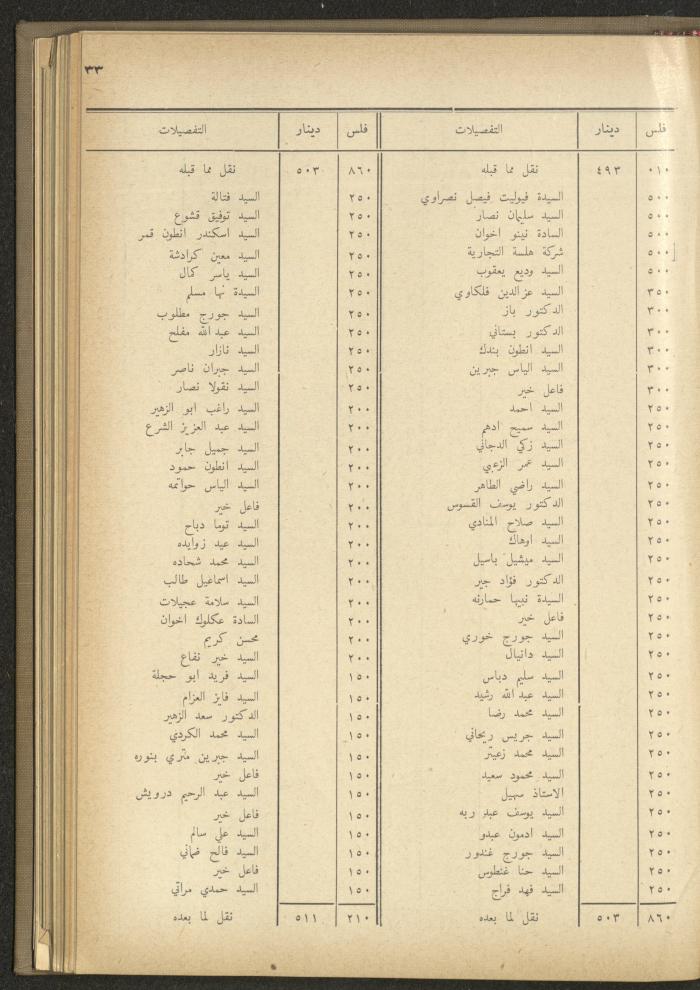 ٣٣
فلس دينار التفصيلات
٠١٠ ٤٩٣ نقل مما قبله
٥٠٠ السيدة فيوليت فيصل نصراوي
٥٠٠ السيد سليمان نصار
٥٠٠ السادة نينو اخوان
٥٠٠ شركة هلسة التجارية
٥٠٠ السيد وديع يعقوب
٣٥٠ السيد عزالدين فلكاوي
٣٠٠ الدكتور باز
٣٠٠ الدكتور بستاني
٣٠٠ السيد انطون بندك
٣٠٠ السيد الياس جبرين
٣٠٠ فاعل خير
٢٥٠ السيد احمد
٢٥٠ السيد سميح ادهم
٢٥٠ السيد زكي الدجاني
٢٥٠ السيد عمر الزعبي
٢٥٠ السيد راضي الطاهر
٢٥٠ الدكتور يوسف القسوس
٢٥٠ السيد صلاح المنادي
٢٥٠ السيد اوهاك
٢٥٠ السيد ميشيل باسيل
٢٥٠ الدكتور فؤاد جبر
٢٥٠ السيدة نبيها حمارنه
٢٥٠ فاعل خير
٢٥٠ السيد جورج خوري
٢٥٠ السيد دانيال
٢٥٠ السيد سليم دباس
٢٥٠ السيد عبد الله رشيد
٢٥٠ السيد محمد رضا
٢٥٠ السيد جريس ريحاني
٢٥٠ السيد محمد زعيتر
٢٥٠ السيد محمود سعيد
٢٥٠ الاستاذ سهيل
٢٥٠ السيد يوسف عبد ربه
٢٥٠ السيد ادمون عبدو
٢٥٠ السيد جورج غندور
٢٥٠ السيد حنا غنطوس
٢٥٠ السيد فهد فراج
٨٦٠ ٥٠٣ نقل لما بعده
فلس دينار التفصيلات
٨٦٠ ٥٠٣ نقل مما قبله
٢٥٠ السيد فتالة
٢٥٠ السيد توفيق قشوع
٢٥٠ السيد اسكندر انطون قمر
٢٥٠ السيد معين كرادشة
٢٥٠ السيد ياسر كمال
٢٥٠ السيدة نها مسلم
٢٥٠ السيد جورج مطلوب
٢٥٠ السيد عبد الله مفلح
٢٥٠ السيد نازار
٢٥٠ السيد جبران ناصر
٢٥٠ السيد نقولا نصار
٢٠٠ السيد راغب ابو الزهير
٢٠٠ السيد عبد العزيز الشرع
٢٠٠ السيد جميل جابر
٢٠٠ السيد انطون حمود
٢٠٠ السيد الياس حواتمه
٢٠٠ فاعل خير
٢٠٠ السيد توما دباح
٢٠٠ السيد عيد زوايده
٢٠٠ السيد محمد شحاده
٢٠٠ السيد اسماعيل طالب
٢٠٠ السيد سلامة عجيلات
٢٠٠ السادة عكلوك اخوان
٢٠٠ محسن كريم
٢٠٠ السيد خير نفاع
١٥٠ السيد فريد ابو حجلة
١٥٠ السيد فايز العزام
١٥٠ الدكتور سعد الزهير
١٥٠ السيد محمد الكردي
١٥٠ السيد جبرين متري بنوره
١٥٠ فاعل خير
١٥٠ السيد عبد الرحيم درويش
١٥٠ فاعل خير
١٥٠ السيد علي سالم
١٥٠ السيد فالح ضماني
١٥٠ فاعل خير
١٥٠ السيد حمدي مراتي
٢١٠ ٥١١ نقل لما بعده